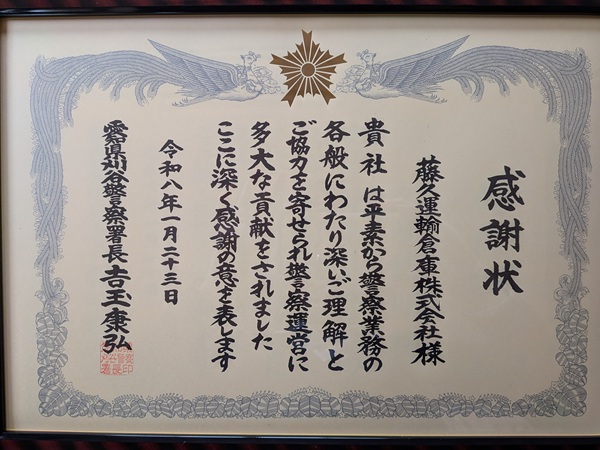 感謝状
藤久運輸倉庫株式会社様
貴社は平素から警察業務の
各般にわたり深いご理解と
ご協力を寄せられ警察運営に
多大な貢献をされました
ここに深く感謝の意を表します
令和八年一月二十三日
愛知県刈谷警察署長 吉玉康弘